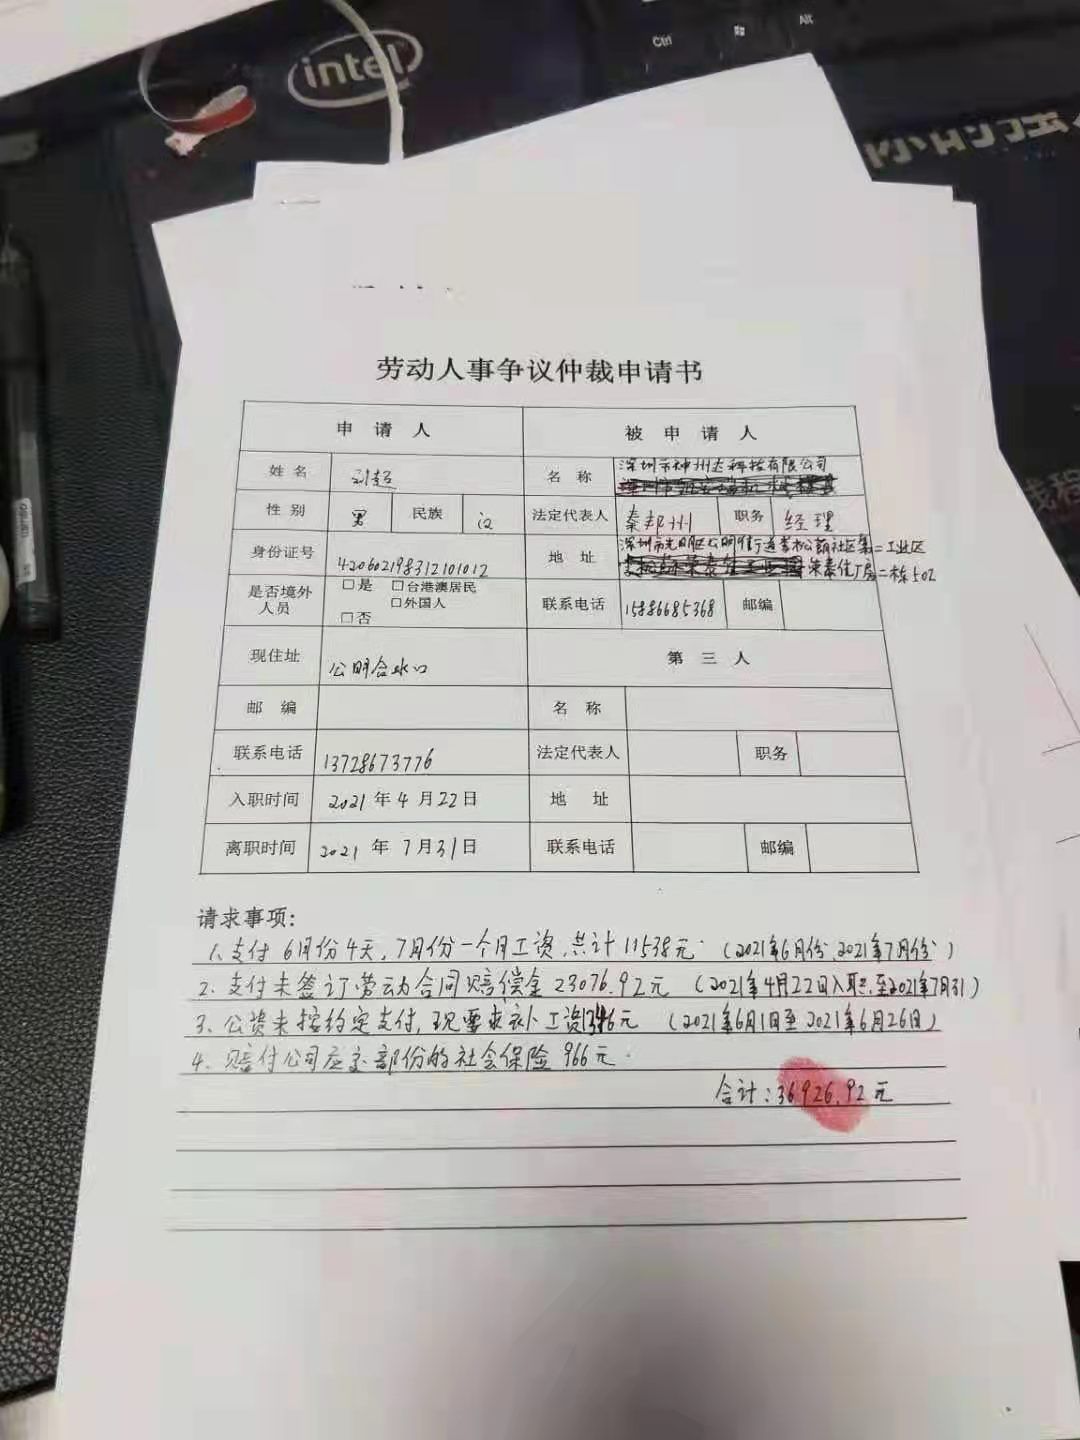 intel
Ctrl
Alt
劳动人事争议仲裁申请书
申请人 被申请人
姓名 刘超 名称 深圳市神州达科技有限公司
性别 男 民族 汉 法定代表人 秦邦州 职务 经理
身份证号 420602198312101012 地址 深圳市光明区公明街道李松蓢社区第二工业区
荣泰佳厂房二栋502
是否境外人员 □是 □台港澳居民 □外国人 □否 联系电话 15886685368 邮编
现住址 公明合水口 第三人
邮编 名称
联系电话 13728673776 法定代表人 职务
入职时间 2021年4月22日 地址
离职时间 2021年7月31日 联系电话 邮编
请求事项:
1、支付6月份4天,7月份一个月工资,共计11538元 (2021年6月份、2021年7月份)
2、支付未签订劳动合同赔偿金23076.92元 (2021年4月22日入职至2021年7月31)
3、工资未按约定支付,现要求补工资1346元 (2021年6月1日至2021年6月26日)
4、赔付公司应交部份的社会保险966元.
合计:36926.92元